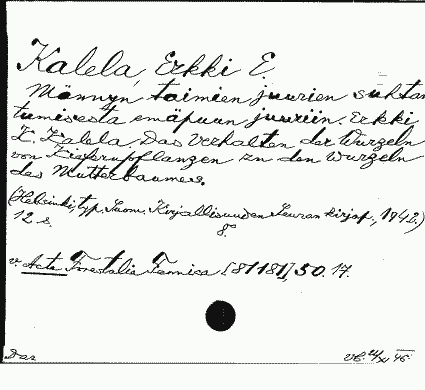 Kalela, Erkki E.
Männyn taimien juurien suhtau
tumisesta emäpuun juuriin. Erkki
E. Kalela. Das Verhalten der Wurzeln
von Kiefernpflanzen zu den Wurzeln
des Mutterbaumes.
(Helsinki, typ. Suom. Kirjallisuuden Seuran kirjap., 1942.)
12 s. 8°
v. Acta Forestalia Fennica [81181], 50. 17.
Das